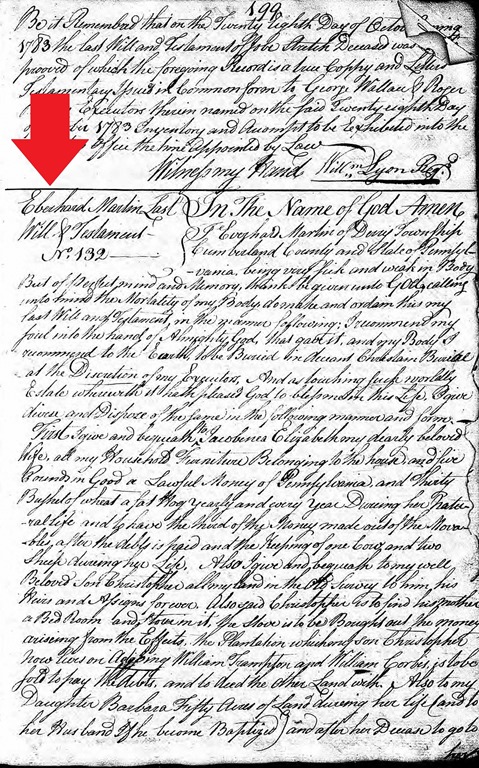 199
Be it Remembered that on the Twenty Eighth Day of October
1783 the last Will and Testament of Jobe Stretch Deceased was
proved of which the foregoing Record is a true Coppy and Letters
Testamentary Issued in Common form to George Wallace & Roger
Executors therein named on the said Twenty eighth Day
1783 Inventory and Accompt to be Exhibited into the
Office the time appointed by Law
Witness my Hand Willm Lyon Regr
Eberhard Martin Last
Will & Testament
No. 132
In The Name of God Amen
I Everhard Martin of Derry Township
Cumberland County and State of Pennsyl-
vania, being very sick and weak in Body
But of perfect mind and Memory, thanks be given unto GOD, calling
unto mind the Mortality of my Body do make and ordain this my
last Will and Testament, in the manner following, I recommend my
soul into the hand of Almighty God, that gave it, and my Body I
recommend to the Earth to be Buried in decent Christain Burial
at the Discretion of my Executors, And as touching such worldly
Estate wherewith it hath pleased God to bless me in this Life, I give
devise and Dispose of the same in the following manner and form.
First I give and bequeath to Jacobinia Elizabeth my dearly beloved
Wife, all my Household Furniture Belonging to the house, and five
Pounds in Good & Lawful Money of Pennsylvania and Thirty
Bushels of wheat a fat Hog yearly and every Year During her Natu-
ral life and to have the third of the Money made out of the Mova-
bles, after the debts is paid and the keeping of one Cow, and two
Sheep dureing her Life. Also I give and bequeath to my well
Beloved Son Christopher all my land in the Old Survey to him, his
Heirs and Assigns forever. Also said Christopher is to find his mother
a Bed Room and Stove in it, the Stove is to be Bought out the money
ariseing from the Effects, the Plantation whereon Son Christopher
now lives on William Trampton and William Corbis, is to be
sold to pay the debts, and to deed the other Land with. Also to my
Daughter Barbara Fifty Acres of Land, dureing her life (and to
her Husband If he become Baptized) and after her Decease to go to